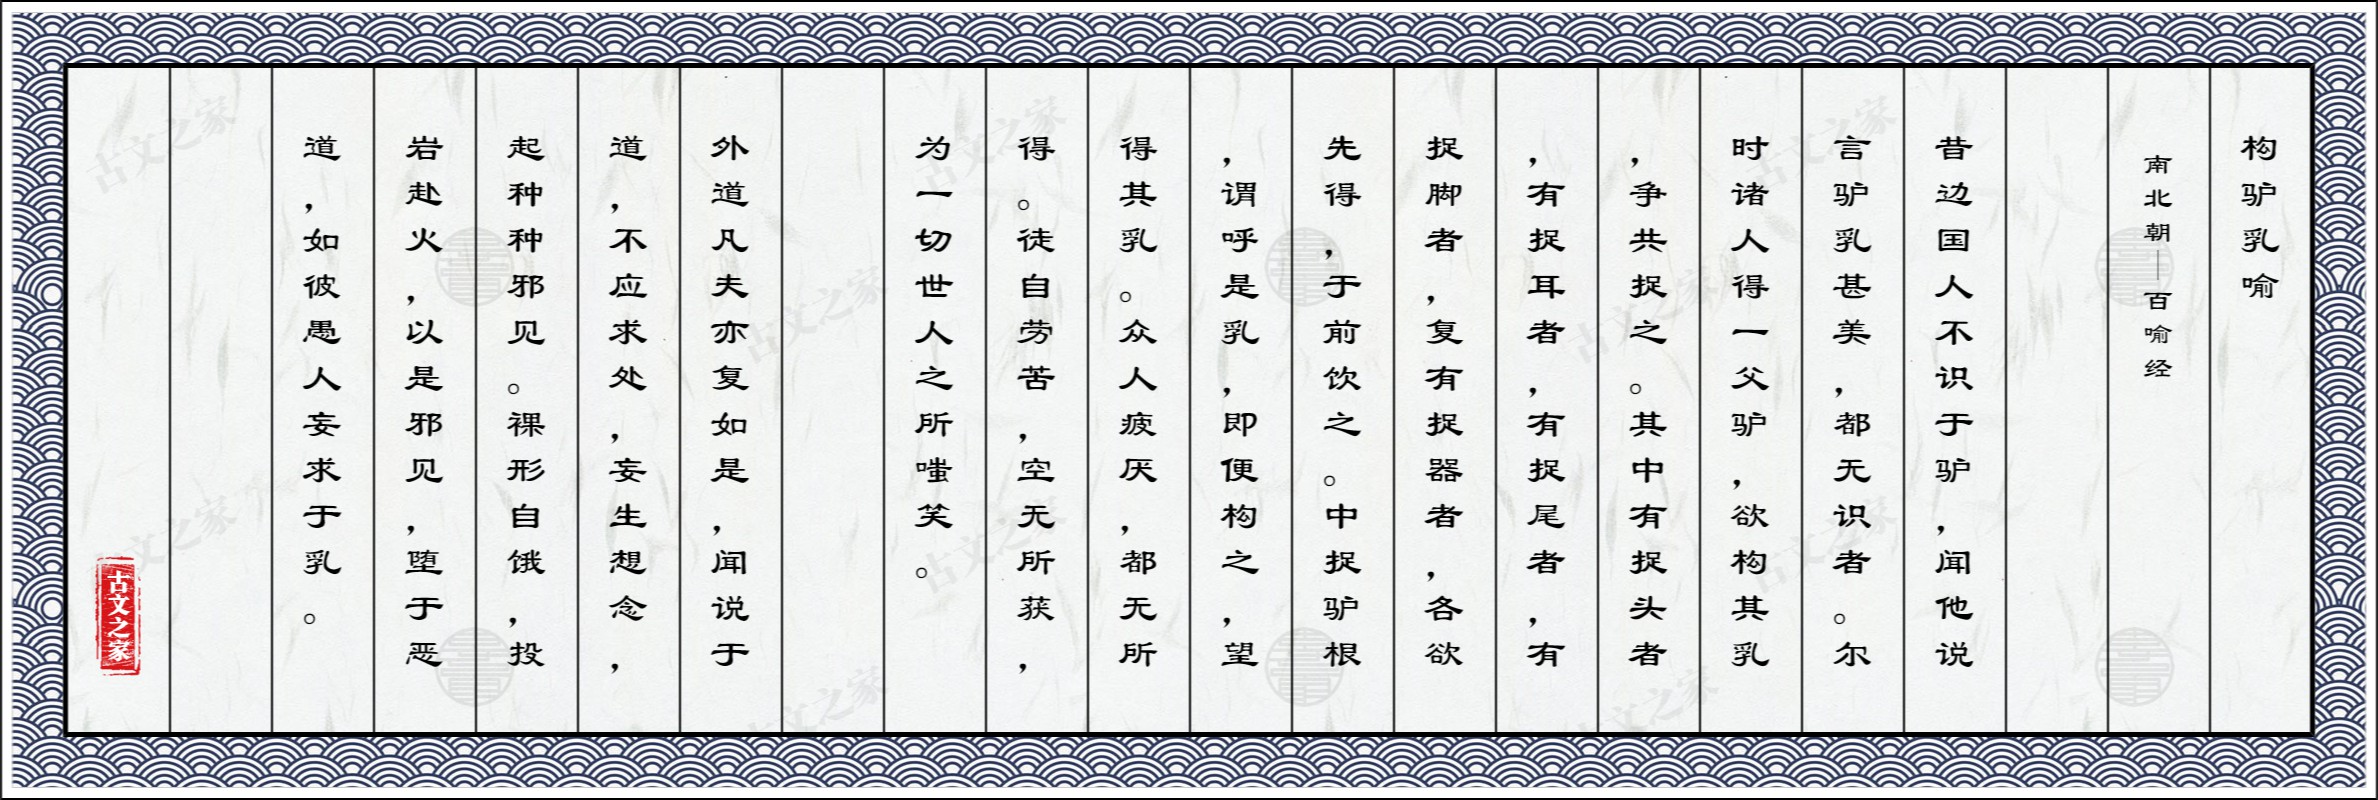 构驴乳喻
南北朝—百喻经
昔边国人不识于驴，闻他说
言驴乳甚美，都无识者。尔
时诸人得一父驴，欲构其乳
，争共捉之。其中有捉头者
，有捉耳者，有捉尾者，有
捉脚者，复有捉器者，各欲
先得，于前饮之。中捉驴根
，谓呼是乳，即便构之，望
得其乳。众人疲厌，都无所
得。徒自劳苦，空无所获，
为一切世人之所嗤笑。
外道凡夫亦复如是，闻说于
道，不应求处，妄生想念，
起种种邪见。裸形自饿，投
岩赴火，以是邪见，堕于恶
道，如彼愚人妄求于乳。
古文之家